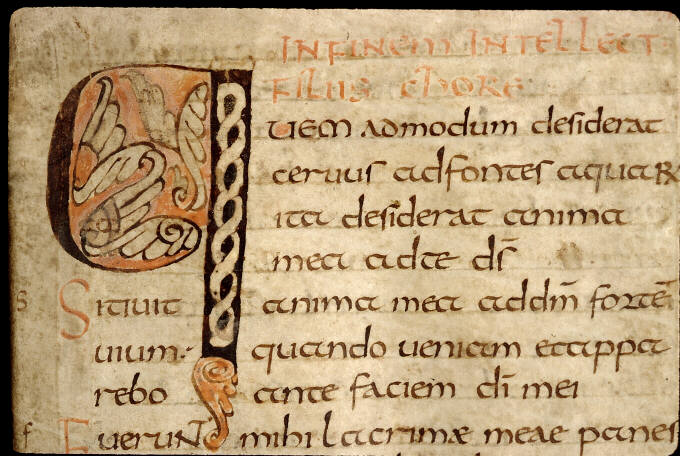 IN FINEM INTELLECT
FILIIS CHORE
QUEM admodum desiderat
ceruus ad fontes aquaR
ita desiderat anima
mea ad te ds̄
S Sitiuit anima mea ad dm̄ fortē
uiuum: quando ueniam et appa
rebo ante faciem dī mei
f FueruNT mihi lacrimæ meae panes